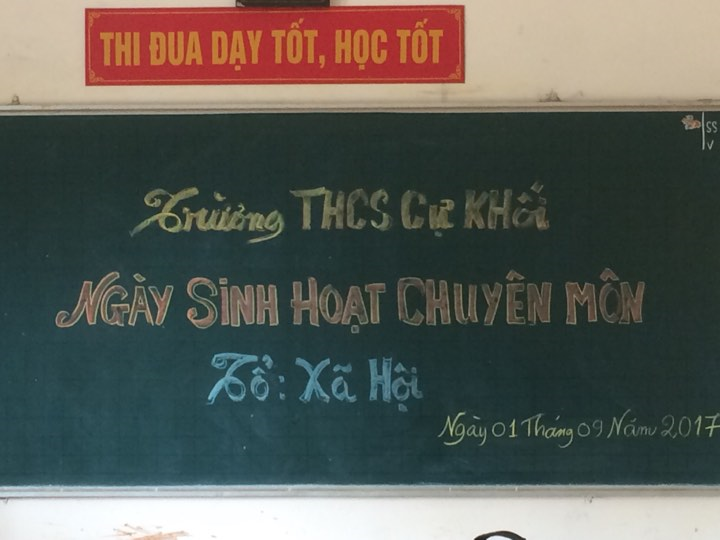 THI ĐUA DẠY TỐT, HỌC TỐT
SS
V
Trường THCS Cự KHỐi
NGÀY SiNH HOẠT CHUYÊN MÔN
Tổ: Xã Hội
Ngày 01 Tháng 09 Năm 2017